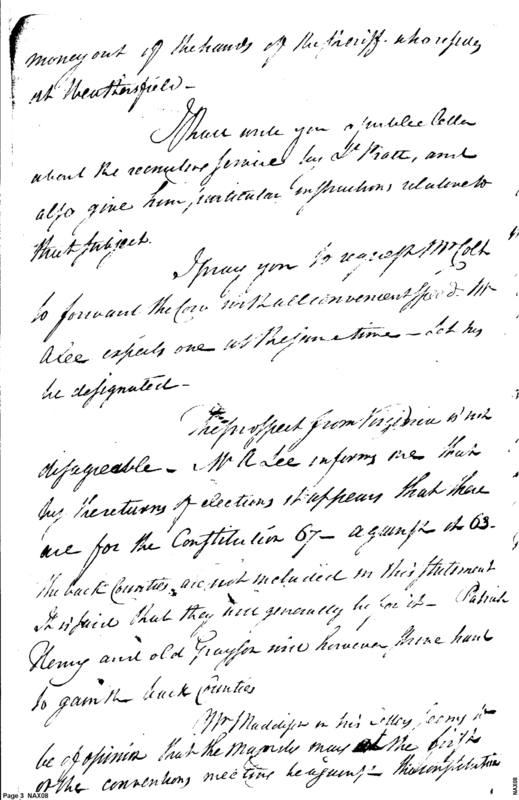 money out of the hands of the sheriff who resides
at Weathersfield -
I shall write you a public letter
about the recruiting service by Lt Pratt, and
also give him, particular instructions relative to
that subject.
I pray you to request Mr Colt
to forward the Cow with all convenient speed. Mr
A Lee expects one at the same time - Let his
be designated -
The prospect from Virginia is not
disagreeable - Mr A Lee informs me that
by the returns of elections it appears that there
are for the Constitution 67 - against it 63 -
the back Counties are not included in this statement
It is said that they will generally be for it - Patrick
Henry and old Grayson will however, their hand
to gain the back Counties
Mr J Maddison in his letters seems to
be of opinion that the Majority may at the first
of the conventions meeting be against the constitution
Page 3 NAX08
NAX08